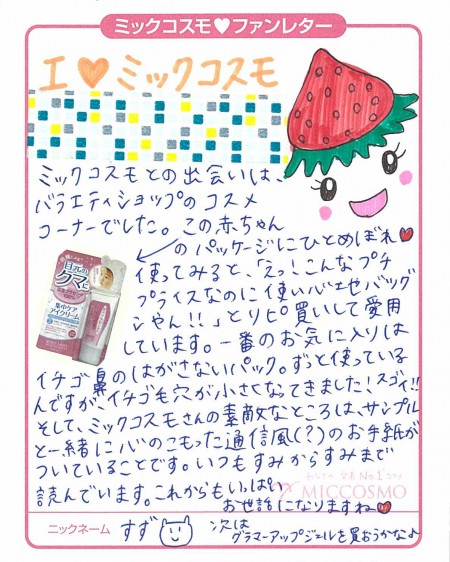 ミックコスモ♥ファンレター
I♥ミックコスモ
ミックコスモとの出会いは、
バラエティショップのコスメ
コーナーでした。この赤ちゃん
のパッケージにひとめぼれ♥
使ってみると、「えっ!こんなプチ
プライスなのに使い心地バツグン
じゃん!!」とリピ買いして愛用
しています。一番のお気に入りは
イチゴ鼻のはがさないパック。ずっと使っている
んですが、イチゴ毛穴が小さくなってきました!スゴイ!!
そして、ミックコスモさんの素敵なところは、サンプル
と一緒に心のこもった通信風(?)のお手紙が
ついていることです。いつもすみからすみまで
読んでいます。これからもいっぱい
お世話になりますね♥
MICCOSMO
ニックネーム すず
次は
グラマーアップジェルを買おうかな♪
目元の
クマに
集中ケア
アイクリーム